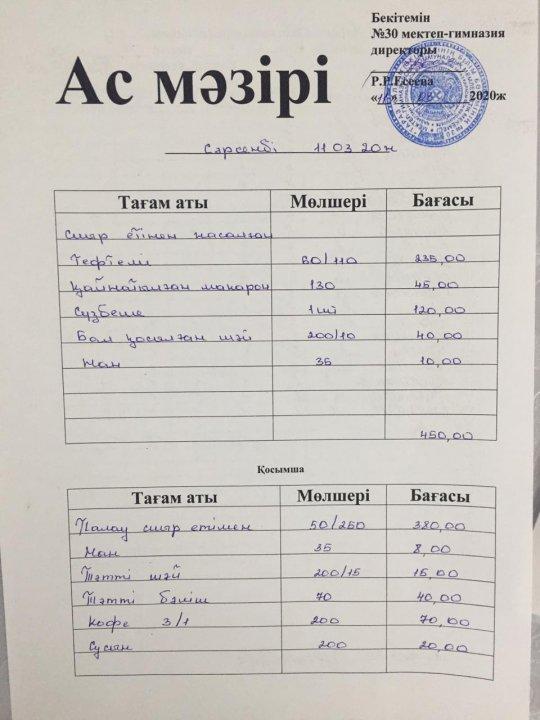 Бекітемін
№30 мектеп-гимназия
директоры
Р.Р.Есеева
2020ж
Ас мәзірі
Сәрсенбі 11 03 20ж
Тағам аты Мөлшері Бағасы
Сиыр етінен жасалған
Тефтели 60/110 235,00
Қайнатылған макарон 130 45,00
Сүзбеше 1шт 120,00
Бал қосылған шәй 200/10 40,00
Нан 35 10,00
450,00
Қосымша
Тағам аты Мөлшері Бағасы
Палау сиыр етімен 50/250 380,00
Нан 35 8,00
Тәтті шәй 200/15 15,00
Тәтті бәліш 70 40,00
Кофе 3/1 200 70,00
Сусын 200 20,00